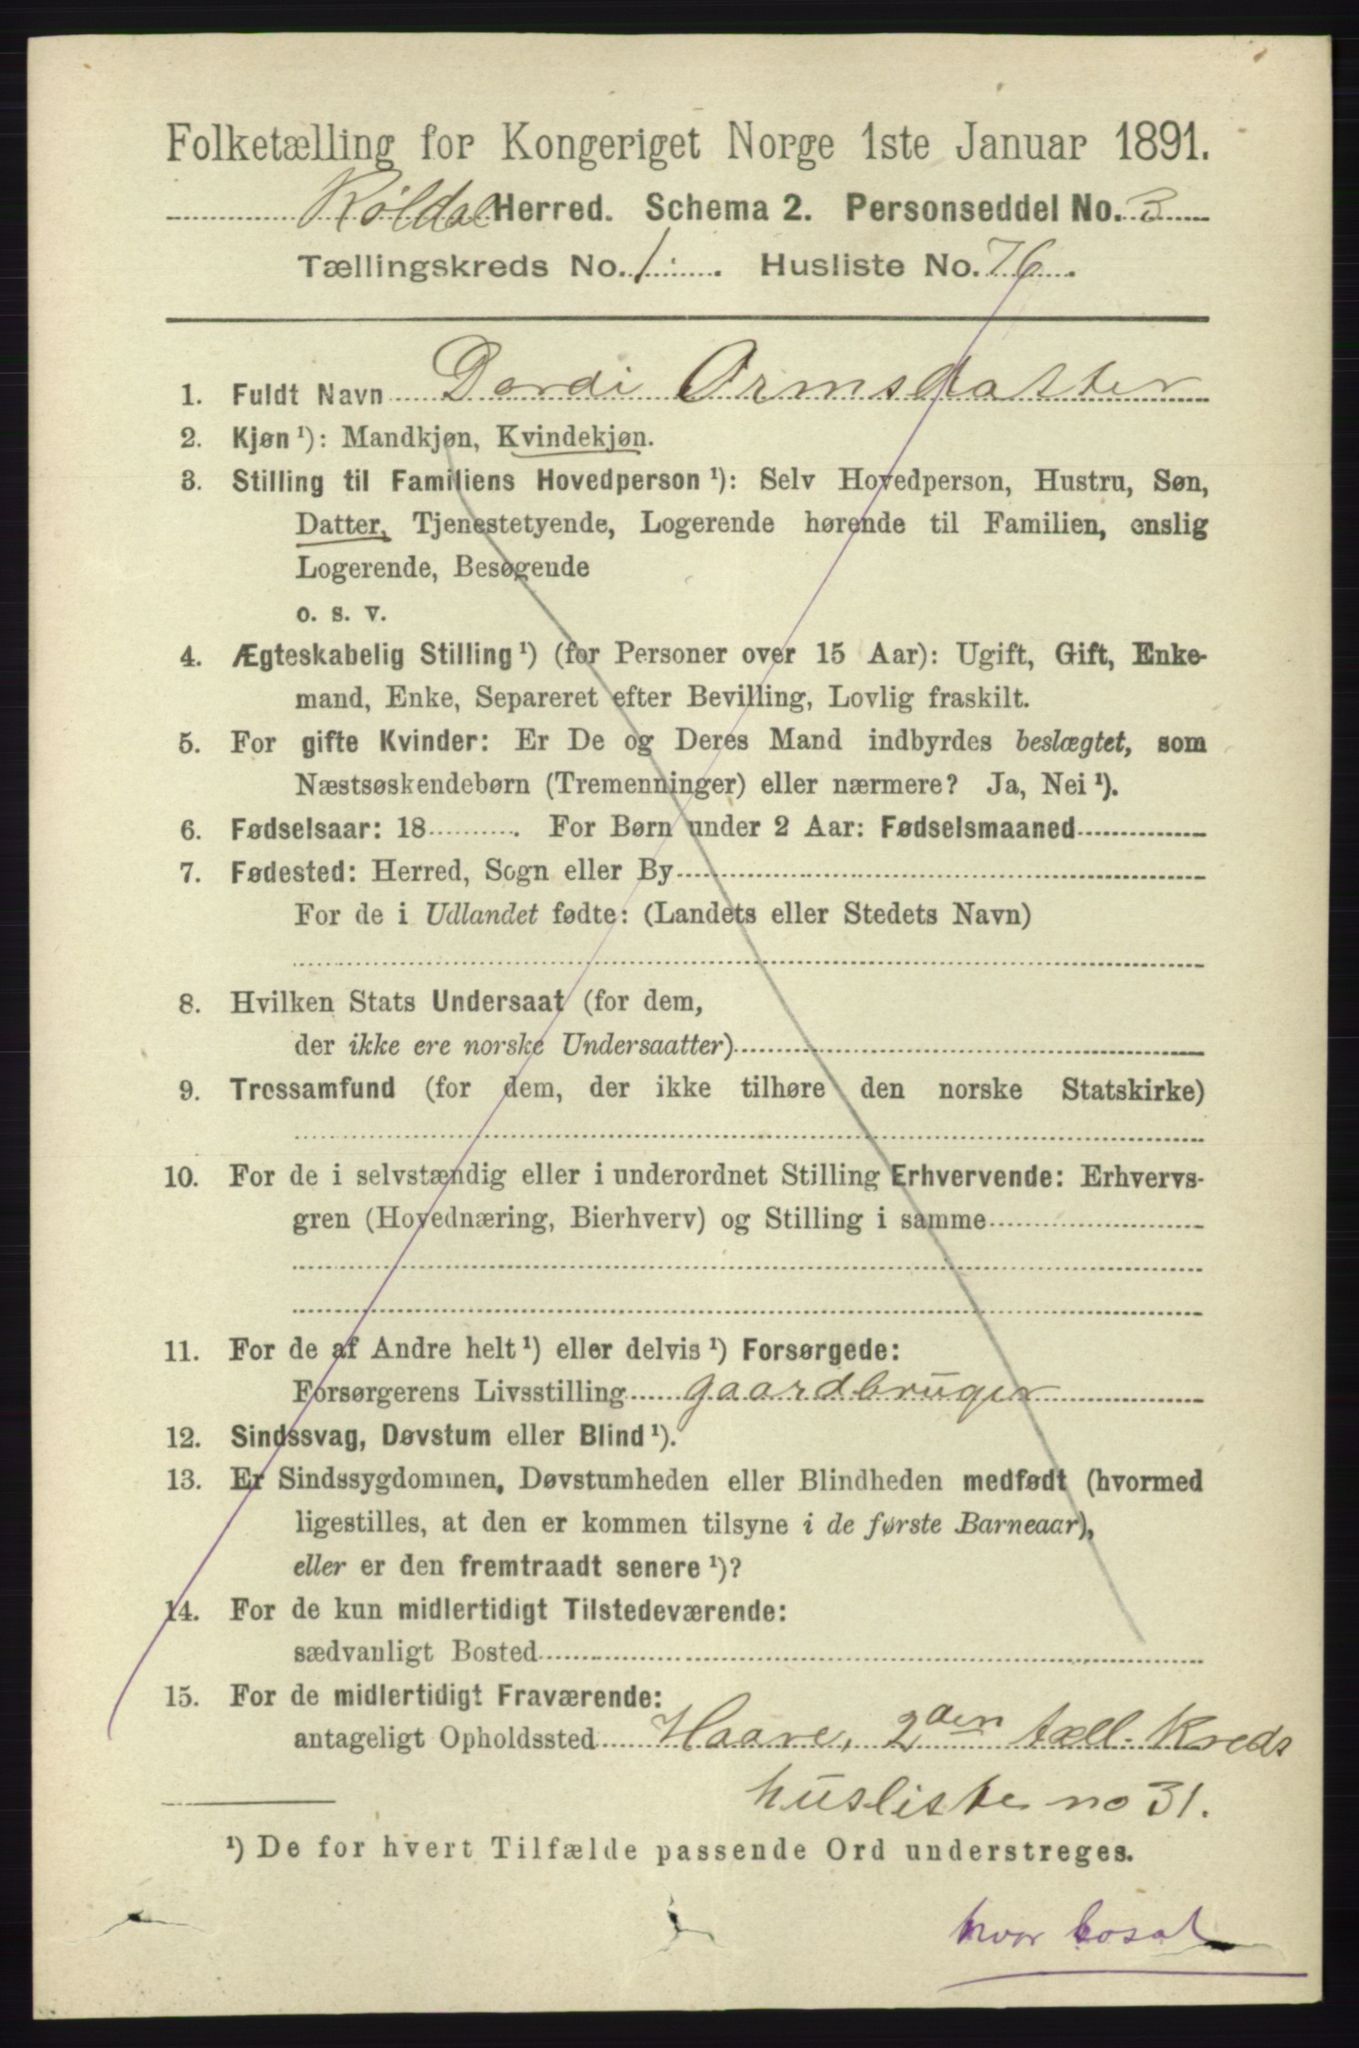 Folketælling for Kongeriget Norge 1ste Januar 1891.
Røldal Herred. Schema 2. Personseddel No. 3
Tællingskreds No. 1. Husliste No. 76.
1. Fuldt Navn Dordi Ormsdatter
2. Kjøn¹): Mandkjøn, Kvindekjøn.
3. Stilling til Familiens Hovedperson¹): Selv Hovedperson, Hustru, Søn,
Datter, Tjenestetyende, Logerende hørende til Familien, enslig
Logerende, Besøgende
o. s. v.
4. Ægteskabelig Stilling¹) (for Personer over 15 Aar): Ugift, Gift, Enke-
mand, Enke, Separeret efter Bevilling, Lovlig fraskilt.
5. For gifte Kvinder: Er De og Deres Mand indbyrdes beslægtet, som
Næstsøskendebørn (Tremenninger) eller nærmere? Ja, Nei¹).
6. Fødselsaar: 18 . For Børn under 2 Aar: Fødselsmaaned
7. Fødested: Herred, Sogn eller By
For de i Udlandet fødte: (Landets eller Stedets Navn)
8. Hvilken Stats Undersaat (for dem,
der ikke ere norske Undersaatter)
9. Trossamfund (for dem, der ikke tilhøre den norske Statskirke)
10. For de i selvstændig eller i underordnet Stilling Erhvervende: Erhvervs-
gren (Hovednæring, Bierhverv) og Stilling i samme
11. For de af Andre helt¹) eller delvis¹) Forsørgede:
Forsørgerens Livsstilling gaardbruger
12. Sindssvag, Døvstum eller Blind¹).
13. Er Sindssygdommen, Døvstumheden eller Blindheden medfødt (hvormed
ligestilles, at den er kommen tilsyne i de første Barneaar),
eller er den fremtraadt senere¹)?
14. For de kun midlertidigt Tilstedeværende:
sædvanligt Bosted
15. For de midlertidigt Fraværende:
antageligt Opholdssted Haare, 2den tæll. Kreds
husliste no 31.
¹) De for hvert Tilfælde passende Ord understreges.
hvor bosat